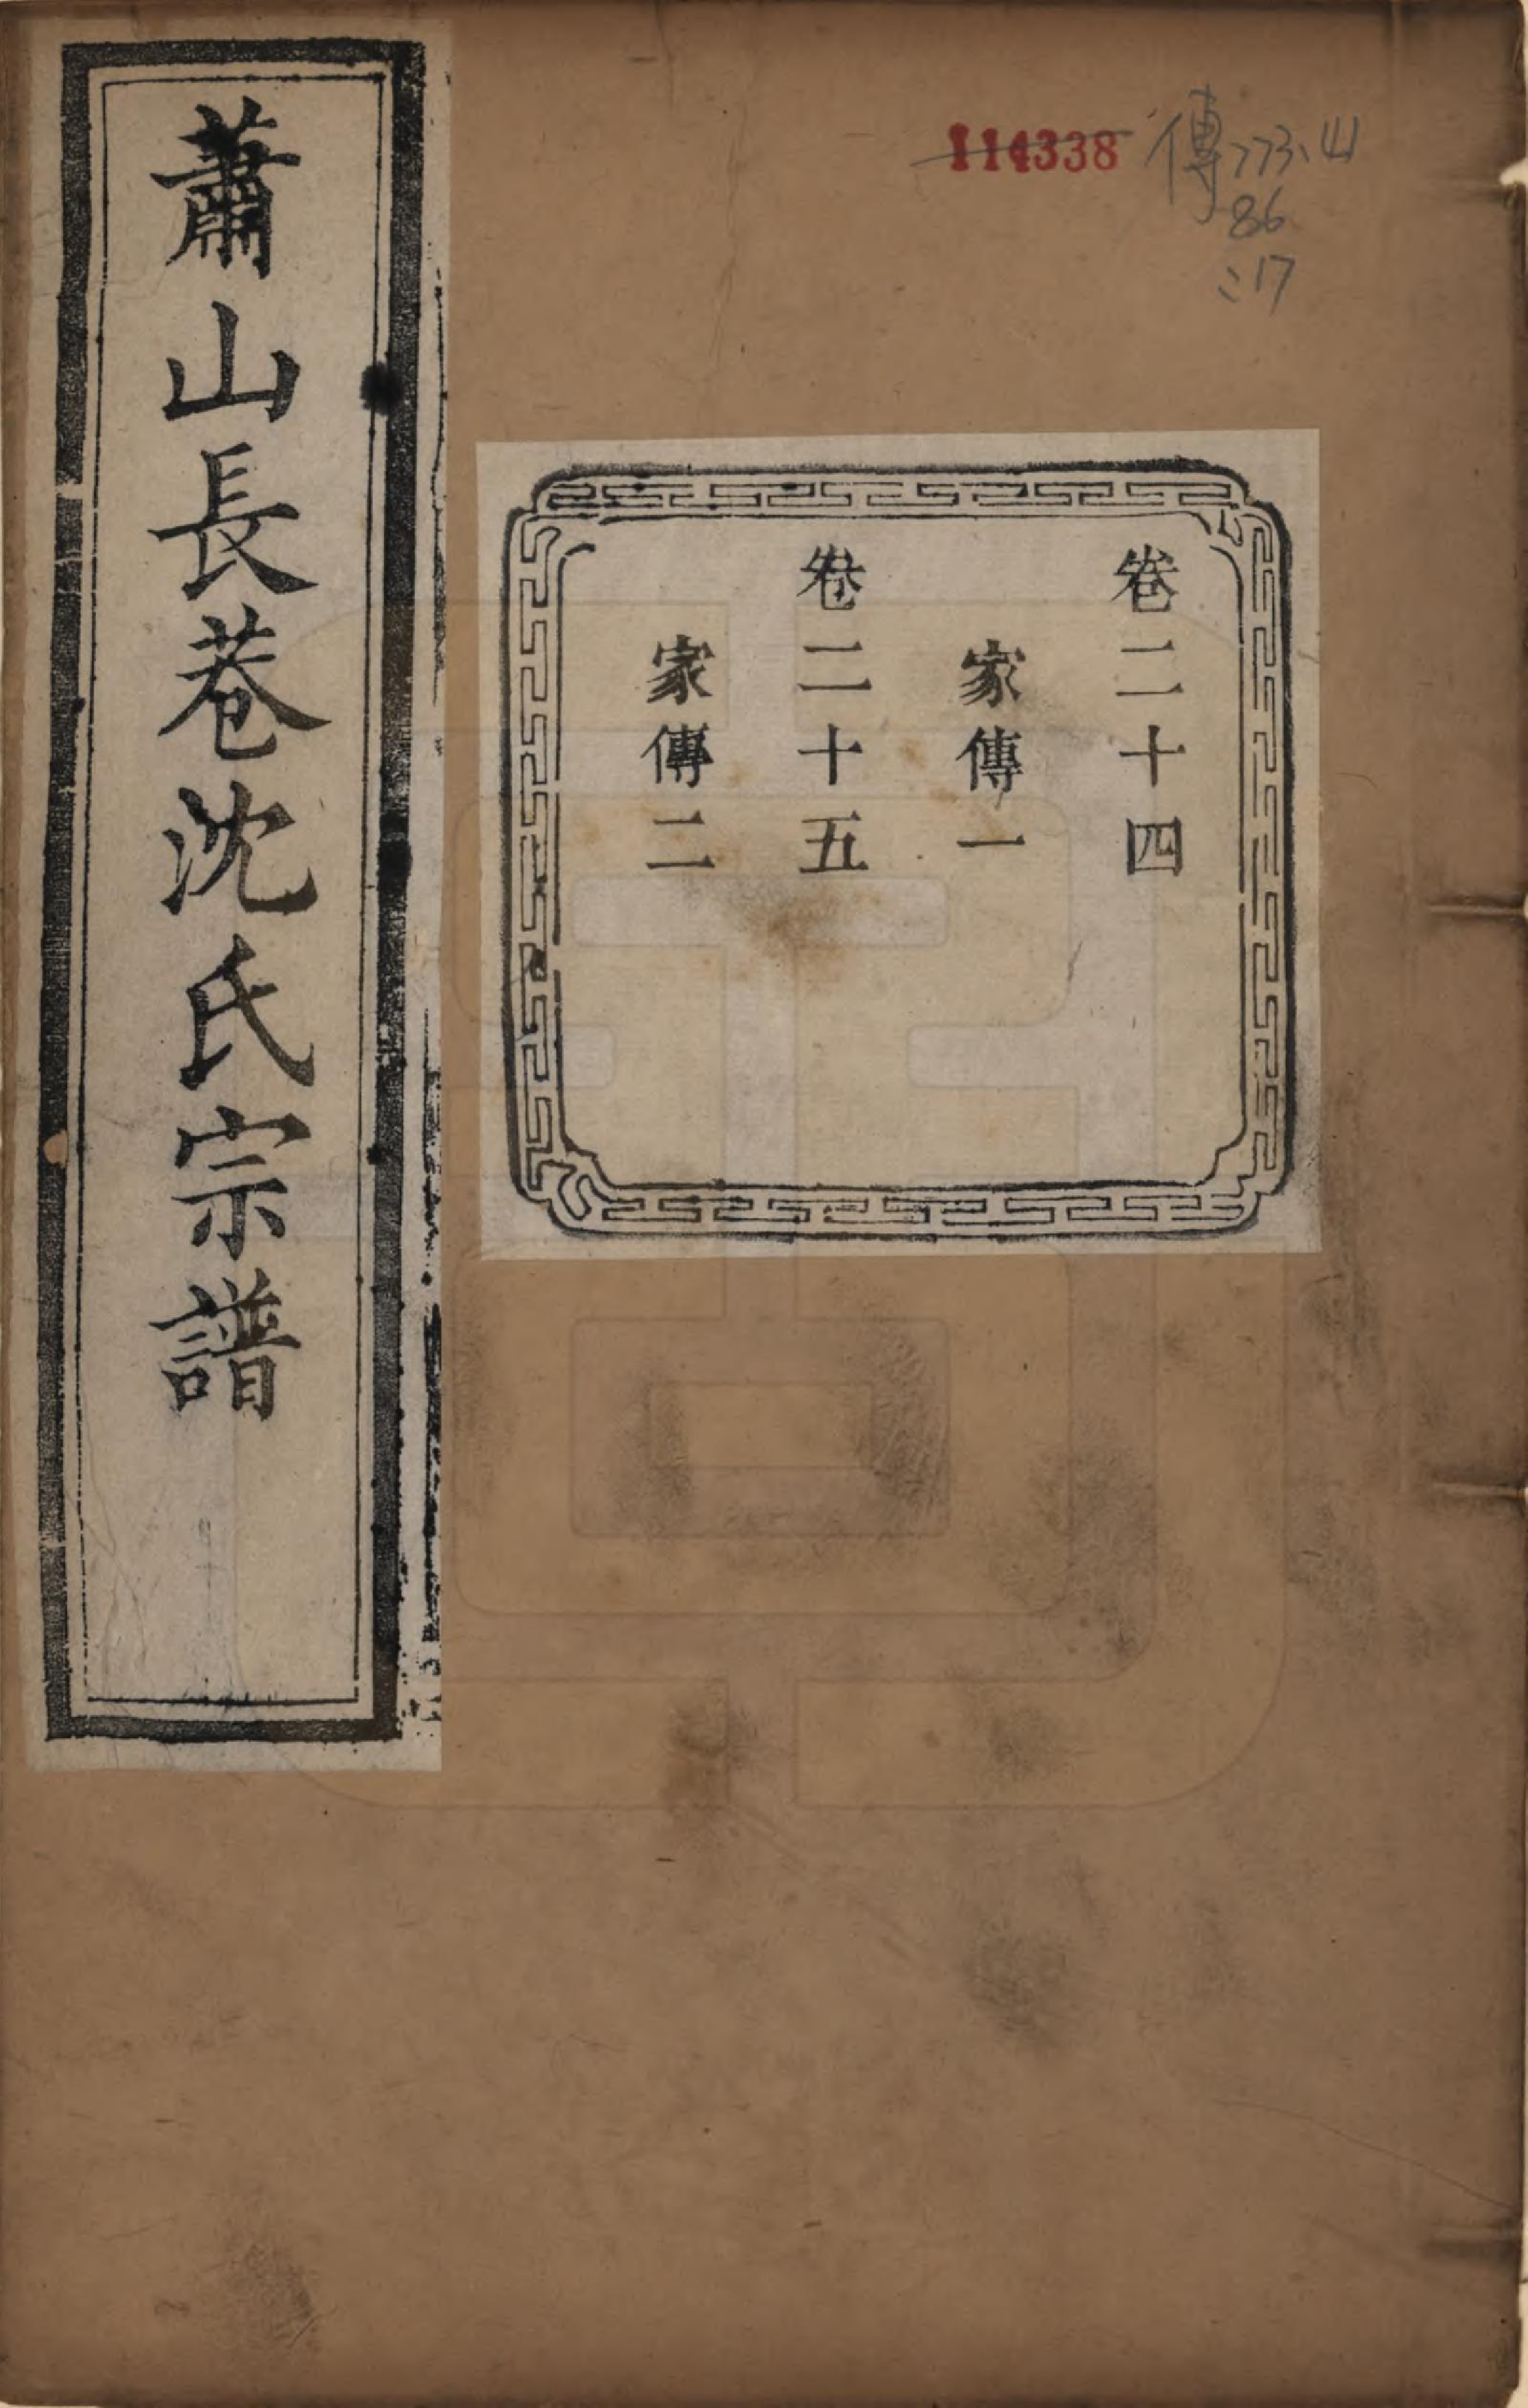 蕭山長巷沈氏宗譜
114338
傳773.41
86
:17
卷二十四
家傳一
卷二十五
家傳二